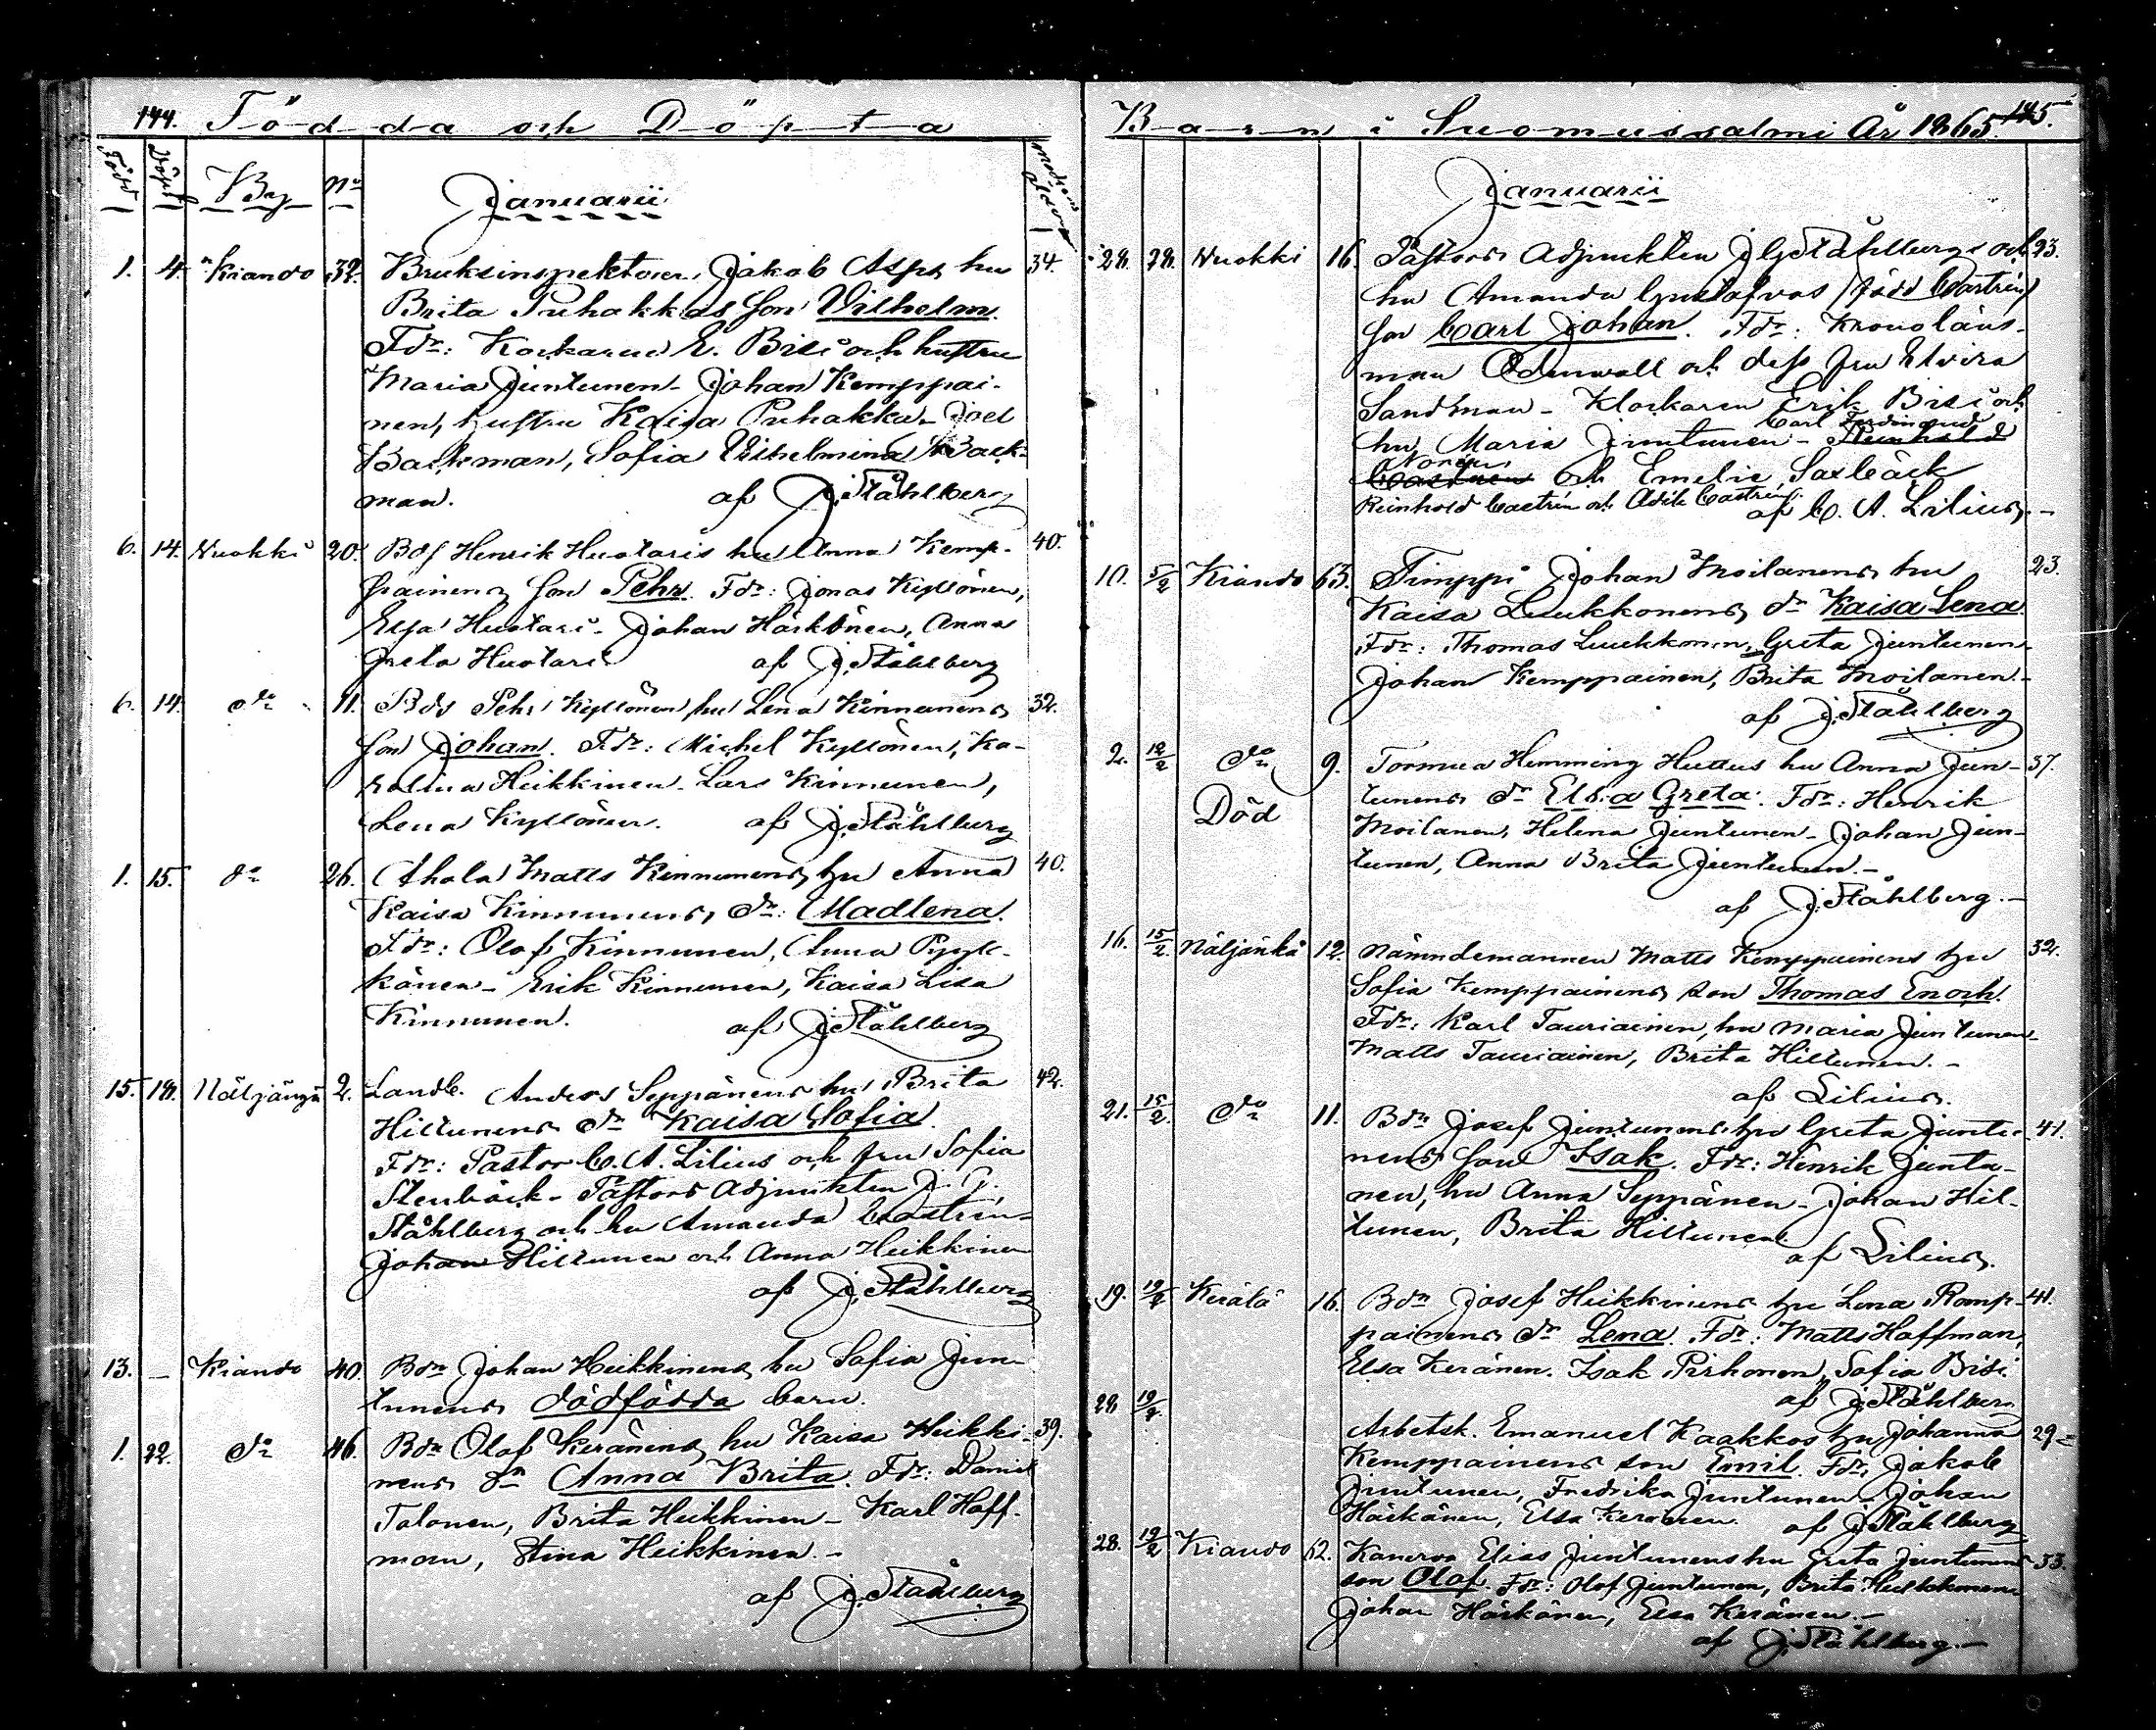 144. Födda och Döpta
Född Döpt By No Modrens ålder
Januarii
1. 4. Kiando 32. Bruksinspektoren Jakob Asps hu 34.
Brita Puhakkas son Vilhelm.
Fdr: Klockaren E. Bisi och hustru
Maria Juntunen - Johan Kemppai-
nen, hustru Kaisa Puhakka - Joel
Backman, Sofia Vilhelmina Back-
man. af J. Ståhlberg
6. 14. Nuokki 20. Bdf Henrik Huotaris hu Anna Kemp- 40.
painens son Pehr. Fdr: Jonas Kyllönen,
Elsa Huotari - Johan Härkönen, Anna
Greta Huotari af J. Ståhlberg
6. 14. do 11. Bds Pehr Kyllönen hu Lena Kinnunens 32.
son Johan. Fdr: Michel Kyllönen, Ka-
rolina Heikkinen - Lars Kinnunen,
Lena Kyllönen. af J. Ståhlberg
1. 15. do 26. Ahola Matts Kinnunens hu Anna 40.
Kaisa Kinnunens dr: Madlena.
Fdr: Olof Kinnunen, Anna Pyyk-
könen - Erik Kinnunen, Kaisa Lisa
Kinnunen. af J. Ståhlberg
15. 18. Näljängä 2. Landb. Anders Seppänens hu Brita 42.
Hiltunens dr Kaisa Sofia.
Fdr: Pastor C. A. Lilius och fru Sofia
Stenbäck - Pastors Adjunkten J. G.
Ståhlberg och hu Amanda Castrén -
Johan Hiltunen och Anna Heikkinen
af J. Ståhlberg
13. — Kiando 40. Bdn Johan Heikkinens hu Sofia Jun-
tunens dödfödda barn.
1. 22. do 46. Bdn Olof Keränens hu Kaisa Heikki- 39.
nens dr Anna Brita. Fdr: Daniel
Tolonen, Brita Heikkinen - Karl Hoff-
man, Stina Heikkinen. -
af J. Ståhlberg
Barn i Suomussalmi År 1865. 145.
Januarii
28. 28. Nuokki 16. Pastors Adjunkten J G Ståhlbergs och 23.
hu Amanda Gustafvas (född Castrén)
son Carl Johan. Fdr: Kronoläns-
man Odenwall och dess fru Elvira
Sandman - Klockaren Erik Bisi och
Carl Ferdinand
hu Maria Juntunen - Reinhold
Norén
Castrén och Emelie Saxbäck
Reinhold Castrén och Adéle Castrén.
af C. A. Lilius. -
10. 5/2 Kiando 63. Timppi Johan Moilanens hu 23.
Kaisa Luukkonens dr Kaisa Lena.
Fdr: Thomas Luukkonen, Greta Juntunen -
Johan Kemppainen, Brita Moilanen. -
af J. Ståhlberg
2. 12/2 do 9. Tormua Hemming Huttus hu Anna Jun- 37.
Död
tunens dr Elsa Greta. Fdr: Henrik
Moilanen, Helena Juntunen - Johan Jun-
tunen, Anna Brita Juntunen. -
af J. Ståhlberg. -
16. 15/2 Näljänkä 12. Nämndemannen Matts Kemppainens hu 32.
Sofia Kemppainens son Thomas Enoch.
Fdr: Karl Tauriainen, hu Maria Juntunen -
Matts Tauriainen, Brita Hiltunen. -
af Lilius.
21. 15/2 do 11. Bdn Josef Juntunens hu Greta Juntu- 41.
nens son Isak. Fdr: Henrik Juntu-
nen, hu Anna Seppänen - Johan Hil-
tunen, Brita Hiltunen
af Lilius.
19. 19/2 Kerälä 16. Bdn Josef Heikkinens hu Lena Romp- 41.
painens dr Lena. Fdr: Matts Hoffman,
Elsa Keränen. Isak Pirhonen, Sofia Bisi.
af J. Ståhlberg
28 19/2 Arbetsk. Emanuel Kaakkos hu Johanna 29 -
Kemppainens son Emil. Fdr: Jakob
Juntunen, Fredrika Juntunen - Johan
Härkönen, Elsa Keränen. af J. Ståhlberg
28. 19/2 Kiando 62. Kanerva Elias Juntunens hu Greta Juntunens 33.
son Olof. Fdr: Olof Juntunen, Brita Heikkinen
Johan Härkönen, Elsa Keränen. -
af J. Ståhlberg. -